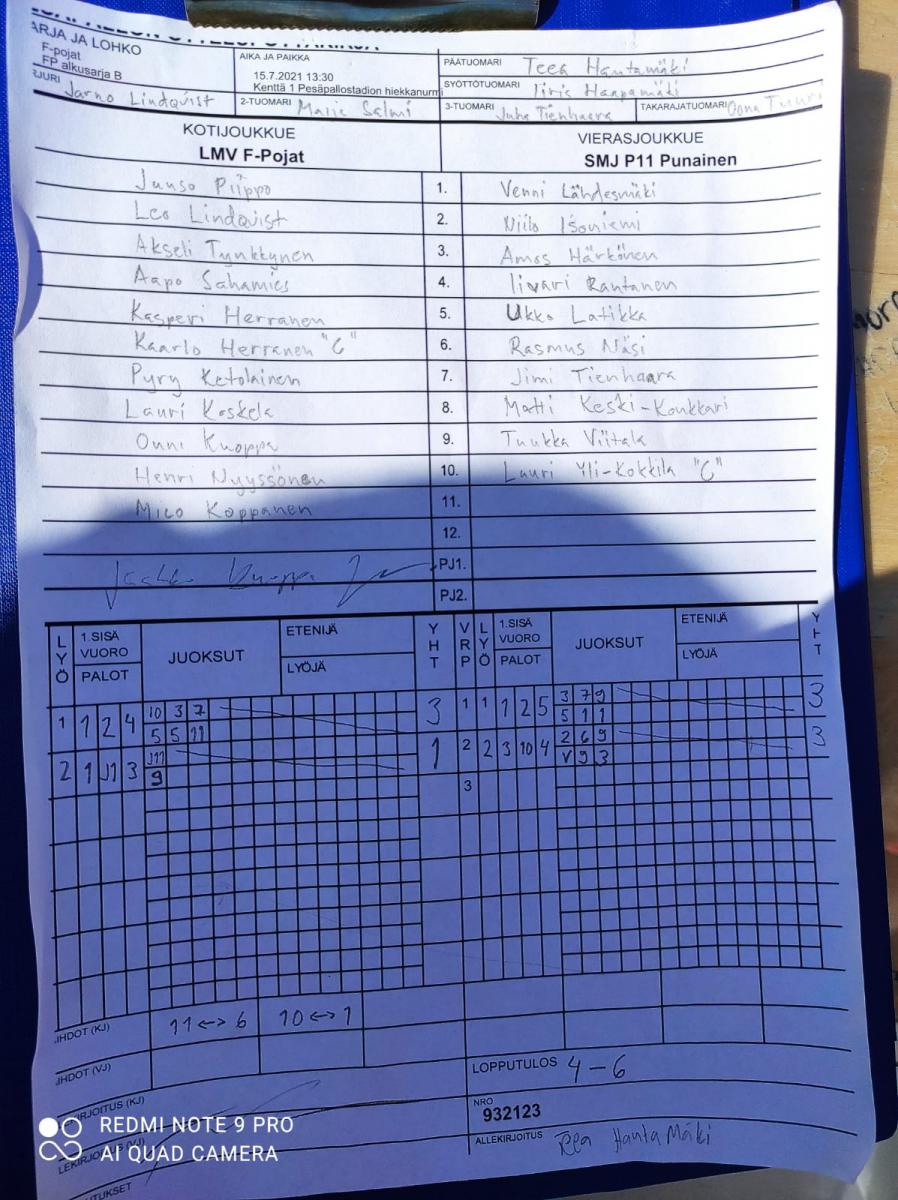 ARJA JA LOHKO
F-pojat
FP alkusarja B
AIKA JA PAIKKA
15.7.2021 13:30
Kenttä 1 Pesäpallostadion hiekkanurm
PÄÄTUOMARI Teea Hautamäki
SYÖTTÖTUOMARI Iiris Haapamäki
RJURI Jarno Lindqvist
2-TUOMARI Marie Salmi
3-TUOMARI Juha Tienhaara
TAKARAJATUOMARI Oona Tuuri
KOTIJOUKKUE
LMV F-Pojat
VIERASJOUKKUE
SMJ P11 Punainen
Juuso Piippo 1. Venni Lähdesmäki
Leo Lindqvist 2. Niilo Isoniemi
Akseli Tynkkynen 3. Amos Härkönen
Aapo Sahamies 4. Iivari Rantanen
Kasperi Herranen 5. Ukko Latikka
Kaarlo Herranen "C" 6. Rasmus Näsi
Pyry Ketolainen 7. Jimi Tienhaara
Lauri Koskela 8. Matti Keski-Koukkari
Onni Kuoppa 9. Tuukka Viitala
Henri Nyyssönen 10. Lauri Yli-Kokkila "C"
Mico Koppanen 11.
12.
Kuoppa PJ1.
PJ2.
LYÖ 1.SISÄ VUORO PALOT JUOKSUT ETENIJÄ LYÖJÄ YHT VRP LYÖ 1.SISÄ VUORO PALOT JUOKSUT ETENIJÄ LYÖJÄ YHT
1 1 2 4 10 3 7 3 1 1 1 2 5 3 7 9 3
5 5 11 5 1 1
2 1 J1 3 J11 1 2 2 3 10 4 2 6 9 3
9 V 9 3
3
IHDOT (KJ) 11 <-> 6 10 <-> 1
IHDOT (VJ)
LOPPUTULOS 4 – 6
KIRJOITUS (KJ)
NRO
932123
LEKIRJOITUS (VJ)
ALLEKIRJOITUS Teea Hautamäki
UTUKSET
REDMI NOTE 9 PRO
AI QUAD CAMERA